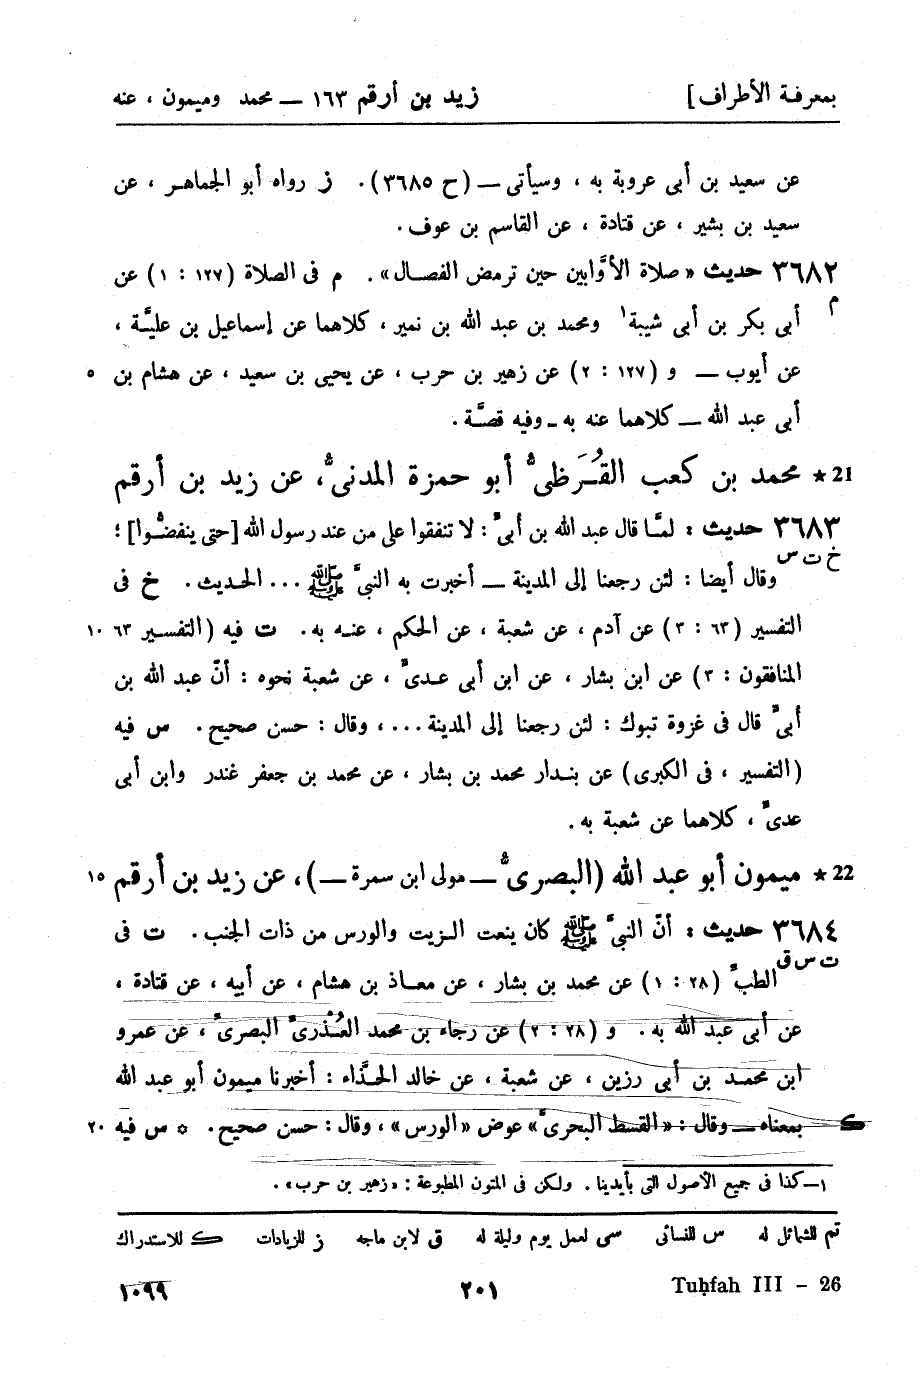 بمعرفة الأطراف] زيد بن أرقم ١٦٣ — محمد وميمون ، عنه
عن سعيد بن أبى عروبة به ، وسيأتى — (ح ٣٦٨٥). ز رواه أبو الجماهر ، عن
سعيد بن بشير ، عن قتادة ، عن القاسم بن عوف.
٣٦٨٢ حديث « صلاة الأوَّابين حين ترمض الفصال». م فى الصلاة (١٢٧ : ١) عن
م
أبى بكر بن أبى شيبة١ ومحمد بن عبد الله بن نمير ، كلاهما عن إسماعيل بن عليَّة ،
عن أيوب — و (١٢٧ : ٢) عن زهير بن حرب ، عن يحيى بن سعيد ، عن هشام بن ٥
أبى عبد الله — كلاهما عنه به - وفيه قصَّة .
21 * محمد بن كعب القُرَظىُّ أبو حمزة المدنىُّ، عن زيد بن أرقم
٣٦٨٣ حديث : لمَّا قال عبد الله بن أبىّ : لا تنفقوا على من عند رسول الله [حتى ينفضُّوا] ؛
خ ت س
وقال أيضا : لئن رجعنا إلى المدينة — أخبرت به النبىَّ ﷺ ... الحديث. خ فى
التفسير (٦٣ : ٣) عن آدم ، عن شعبة ، عن الحكم ، عنه به. ت فيه (التفسير ٦٣ ١٠
المنافقون : ٣) عن ابن بشار ، عن ابن أبى عدىّ ، عن شعبة نحوه : أنّ عبد الله بن
أبىّ قال فى غزوة تبوك : لئن رجعنا إلى المدينة ...، وقال : حسن صحيح. س فيه
(التفسير ، فى الكبرى) عن بندار محمد بن بشار ، عن محمد بن جعفر غندر وابن أبى
عدىّ ، كلاهما عن شعبة به .
22 * ميمون أبو عبد الله (البصرىُّ — مولى ابن سمرة —)، عن زيد بن أرقم ١٥
٣٦٨٤ حديث : أنّ النبىَّ ﷺ كان ينعت الزيت والورس من ذات الجنب. ت فى
ت س ق
الطبّ (٢٨ : ١) عن محمد بن بشار ، عن معاذ بن هشام ، عن أبيه ، عن قتادة ،
عن أبى عبد الله به. و (٢٨ : ٢) عن رجاء بن محمد العُذرىّ البصرىّ ، عن عمرو
ابن محمد بن أبى رزين ، عن شعبة ، عن خالد الحذَّاء : أخبرنا ميمون أبو عبد الله
ك بمعناه — وقال : «القسط البحرىّ» عوض «الورس» ، وقال : حسن صحيح. * س فيه ٢٠
١— كذا فى جميع الأصول التى بأيدينا . ولكن فى المتون المطبوعة : «زهير بن حرب» .
تم للشمائل له س للنسائى سى لعمل يوم وليلة له ق لابن ماجه ز للزيادات ك للاستدراك
Tuḥfah III – 26 ٢٠١ ١٠٩٩